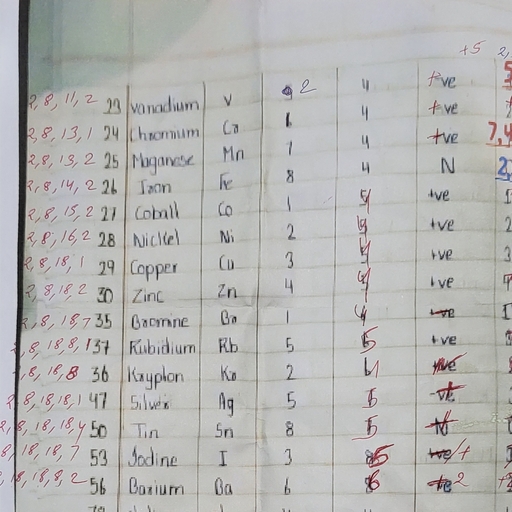 +5 2,
2, 8, 11, 2 23 vanadium V 2 4 +ve 5
2, 8, 13, 1 24 Chromium Cr 6 4 +ve
2, 8, 13, 2 25 Maganese Mn 7 4 +ve 7,4
2, 8, 14, 2 26 Iron Fe 8 4 N 2
2, 8, 15, 2 27 Coball Co 1 4 +ve
2, 8, 16, 2 28 Nickel Ni 2 4 +ve 2
2, 8, 18, 1 29 Copper Cu 3 4 +ve 3
2, 8, 18, 2 30 Zinc Zn 4 4 +ve 4
2, 8, 18, 7 35 Bromine Br 1 4 -ve
2, 8, 18, 8, 1 37 Rubidium Rb 5 5 +ve
8, 18, 8 36 Krypton Kr 2 4
2, 8, 18, 18, 1 47 Silver Ag 5 5
8, 18, 18, 4 50 Tin Sn 8 5 N
8, 18, 18, 7 53 Iodine I 3 5
18, 18, 8, 2 56 Barium Ba 6 6 2